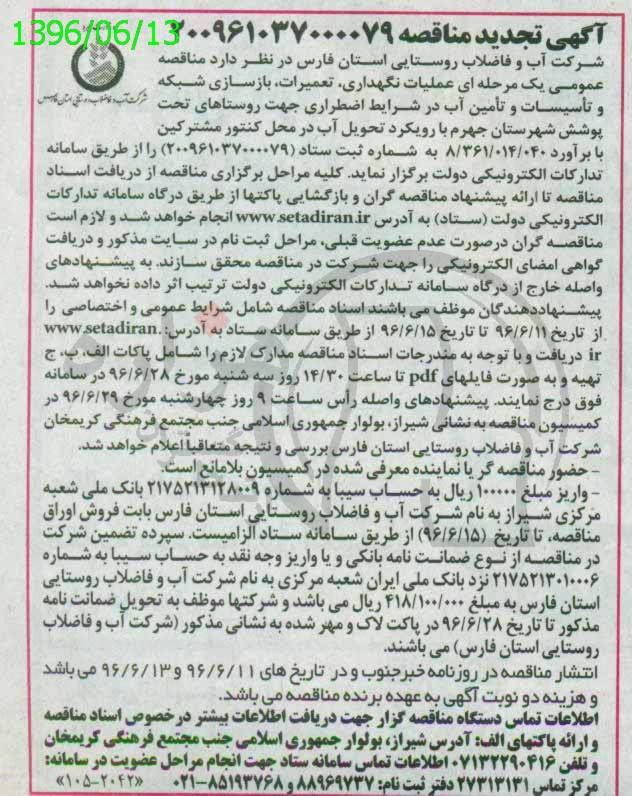 1396/06/13
آگهی تجدید مناقصه ۲۰۰۹۶۱۰۳۷۰۰۰۰۷۹
شرکت آب و فاضلاب روستایی استان فارس
شرکت آب و فاضلاب روستایی استان فارس در نظر دارد مناقصه
عمومی یک مرحله ای عملیات نگهداری، تعمیرات، بازسازی شبکه
و تأسیسات و تأمین آب در شرایط اضطراری جهت روستاهای تحت
پوشش شهرستان جهرم با رویکرد تحویل آب در محل کنتور مشترکین
با برآورد ۸/۳۶۱/۰۱۴/۰۴۰ به شماره ثبت ستاد (۲۰۰۹۶۱۰۳۷۰۰۰۰۷۹) را از طریق سامانه
تدارکات الکترونیکی دولت برگزار نماید. کلیه مراحل برگزاری مناقصه از دریافت اسناد
مناقصه تا ارائه پیشنهاد مناقصه گران و بازگشایی پاکتها از طریق درگاه سامانه تدارکات
الکترونیکی دولت (ستاد) به آدرس www.setadiran.ir انجام خواهد شد و لازم است
مناقصه گران درصورت عدم عضویت قبلی، مراحل ثبت نام در سایت مذکور و دریافت
گواهی امضای الکترونیکی را جهت شرکت در مناقصه محقق سازند. به پیشنهادهای
واصله خارج از درگاه سامانه تدارکات الکترونیکی دولت ترتیب اثر داده نخواهد شد.
پیشنهاددهندگان موظف می باشند اسناد مناقصه شامل شرایط عمومی و اختصاصی را
از تاریخ ۹۶/۶/۱۱ تا تاریخ ۹۶/۶/۱۵ از طریق سامانه ستاد به آدرس: www.setadiran.
ir دریافت و با توجه به مندرجات اسناد مناقصه مدارک لازم را شامل پاکات الف، ب، ج
تهیه و به صورت فایلهای pdf تا ساعت ۱۴/۳۰ روز سه شنبه مورخ ۹۶/۶/۲۸ در سامانه
فوق درج نمایند. پیشنهادهای واصله رأس ساعت ۹ روز چهارشنبه مورخ ۹۶/۶/۲۹ در
کمیسیون مناقصه به نشانی شیراز، بولوار جمهوری اسلامی جنب مجتمع فرهنگی کریمخان
شرکت آب و فاضلاب روستایی استان فارس بررسی و نتیجه متعاقباً اعلام خواهد شد.
- حضور مناقصه گر یا نماینده معرفی شده در کمیسیون بلامانع است.
- واریز مبلغ ۱۰۰۰۰۰ ریال به حساب سیبا به شماره ۲۱۷۵۲۱۳۱۲۸۰۰۹ بانک ملی شعبه
مرکزی شیراز به نام شرکت آب و فاضلاب روستایی استان فارس بابت فروش اوراق
مناقصه، تا تاریخ (۹۶/۶/۱۵) از طریق سامانه ستاد الزامیست. سپرده تضمین شرکت
در مناقصه از نوع ضمانت نامه بانکی و یا واریز وجه نقد به حساب سیبا به شماره
۲۱۷۵۲۱۳۰۱۰۰۰۶ نزد بانک ملی ایران شعبه مرکزی به نام شرکت آب و فاضلاب روستایی
استان فارس به مبلغ ۴۱۸/۱۰۰/۰۰۰ ریال می باشد و شرکتها موظف به تحویل ضمانت نامه
مذکور تا تاریخ ۹۶/۶/۲۸ در پاکت لاک و مهر شده به نشانی مذکور (شرکت آب و فاضلاب
روستایی استان فارس) می باشند.
انتشار مناقصه در روزنامه خبرجنوب و در تاریخ های ۹۶/۶/۱۱ و ۹۶/۶/۱۳ می باشد
و هزینه دو نوبت آگهی به عهده برنده مناقصه می باشد.
اطلاعات تماس دستگاه مناقصه گزار جهت دریافت اطلاعات بیشتر در خصوص اسناد مناقصه
و ارائه پاکتهای الف: آدرس شیراز، بولوار جمهوری اسلامی جنب مجتمع فرهنگی کریمخان
و تلفن ۰۷۱۳۲۲۹۰۴۱۶ اطلاعات تماس سامانه ستاد جهت انجام مراحل عضویت در سامانه:
مرکز تماس ۲۷۳۱۳۱۳۱ دفتر ثبت نام: ۸۸۹۶۹۷۳۷ و ۸۵۱۹۳۷۶۸-۰۲۱ «۱۰۵-۲۰۴۲»